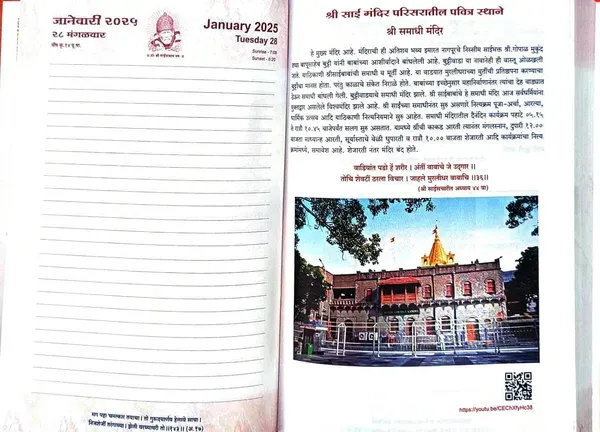 जानेवारी २०२५
२८ मंगळवार
पौष कृ. १४ यु.वा.
January 2025
Tuesday 28
Sunrise - 7:09
Sunset - 6:20
श्री साई मंदिर परिसरातील पवित्र स्थाने
श्री समाधी मंदिर
हे मुख्य मंदिर आहे. मंदिराची ही अतिशय भव्य इमारत नागपूरचे निस्सीम साईभक्त श्री.गोपाळ मुकुंद
तथा बापूसाहेब बुट्टी यांनी बाबांच्या आशीर्वादाने बांधलेली आहे. बुट्टीवाडा या नावानेही ही वास्तू ओळखली
जाते. याठिकाणी श्रीसाईबाबांची समाधी व मूर्ती आहे. या वाड्यात मुरलीधराच्या मुर्तीची प्रतिष्ठापना करण्याचा
बुट्टींचा मानस होता. परंतु काळाचे संकेत निराळे होते. बाबांच्या इच्छेनुसार महानिर्वाणानंतर त्यांचा देह वाड्यात
ठेऊन समाधी बांधली गेली. बुट्टीवाड्याचे समाधी मंदिर झाले. श्री साईबाबांचे हे समाधी मंदिर आज सर्वधर्मियांना
मुक्तद्वार असलेले विश्वमंदिर झाले आहे. श्री साईंच्या समाधीनंतर सुरु असणारे नित्यक्रम पूजा-अर्चा, आरत्या,
धार्मिक उत्सव आदि याठिकाणी नित्यनियमाने सुरु आहेत. समाधी मंदिरातील दैनंदिन कार्यक्रम पहाटे ०५.१५
ते रात्रौ १०.४५ वाजेपर्यंत सलग सुरु असतात. यामध्ये श्रींची काकड आरती त्यानंतर मंगलस्नान, दुपारी १२.००
वाजता माध्यान्ह आरती, सूर्यास्ताचे वेळी धुपारती व रात्रौ १०.०० वाजता शेजारती आदि कार्यक्रमांचा नित्य
क्रमांमध्ये, समावेश आहे. शेजारती नंतर मंदिर बंद होते.
वाडियांत पडो हें शरीर । अंतीं बाबांचे जे उद्गार ।।
तोचि शेवटीं ठरला विचार । जाहले मुरलीधर बाबाचि ।।३६।।
(श्री साईसच्चरीत अध्याय ४४ वा)
श्री समाधी मंदिर
मग पहा चमत्कार तयाचा । तो गुरुदयार्णव हेलावे साचा ।
निजशेजीं सांगावया । होती घरच्यावरी तो ।।१४३।। (अ.१७)
https://youtu.be/CEChXfyHc38